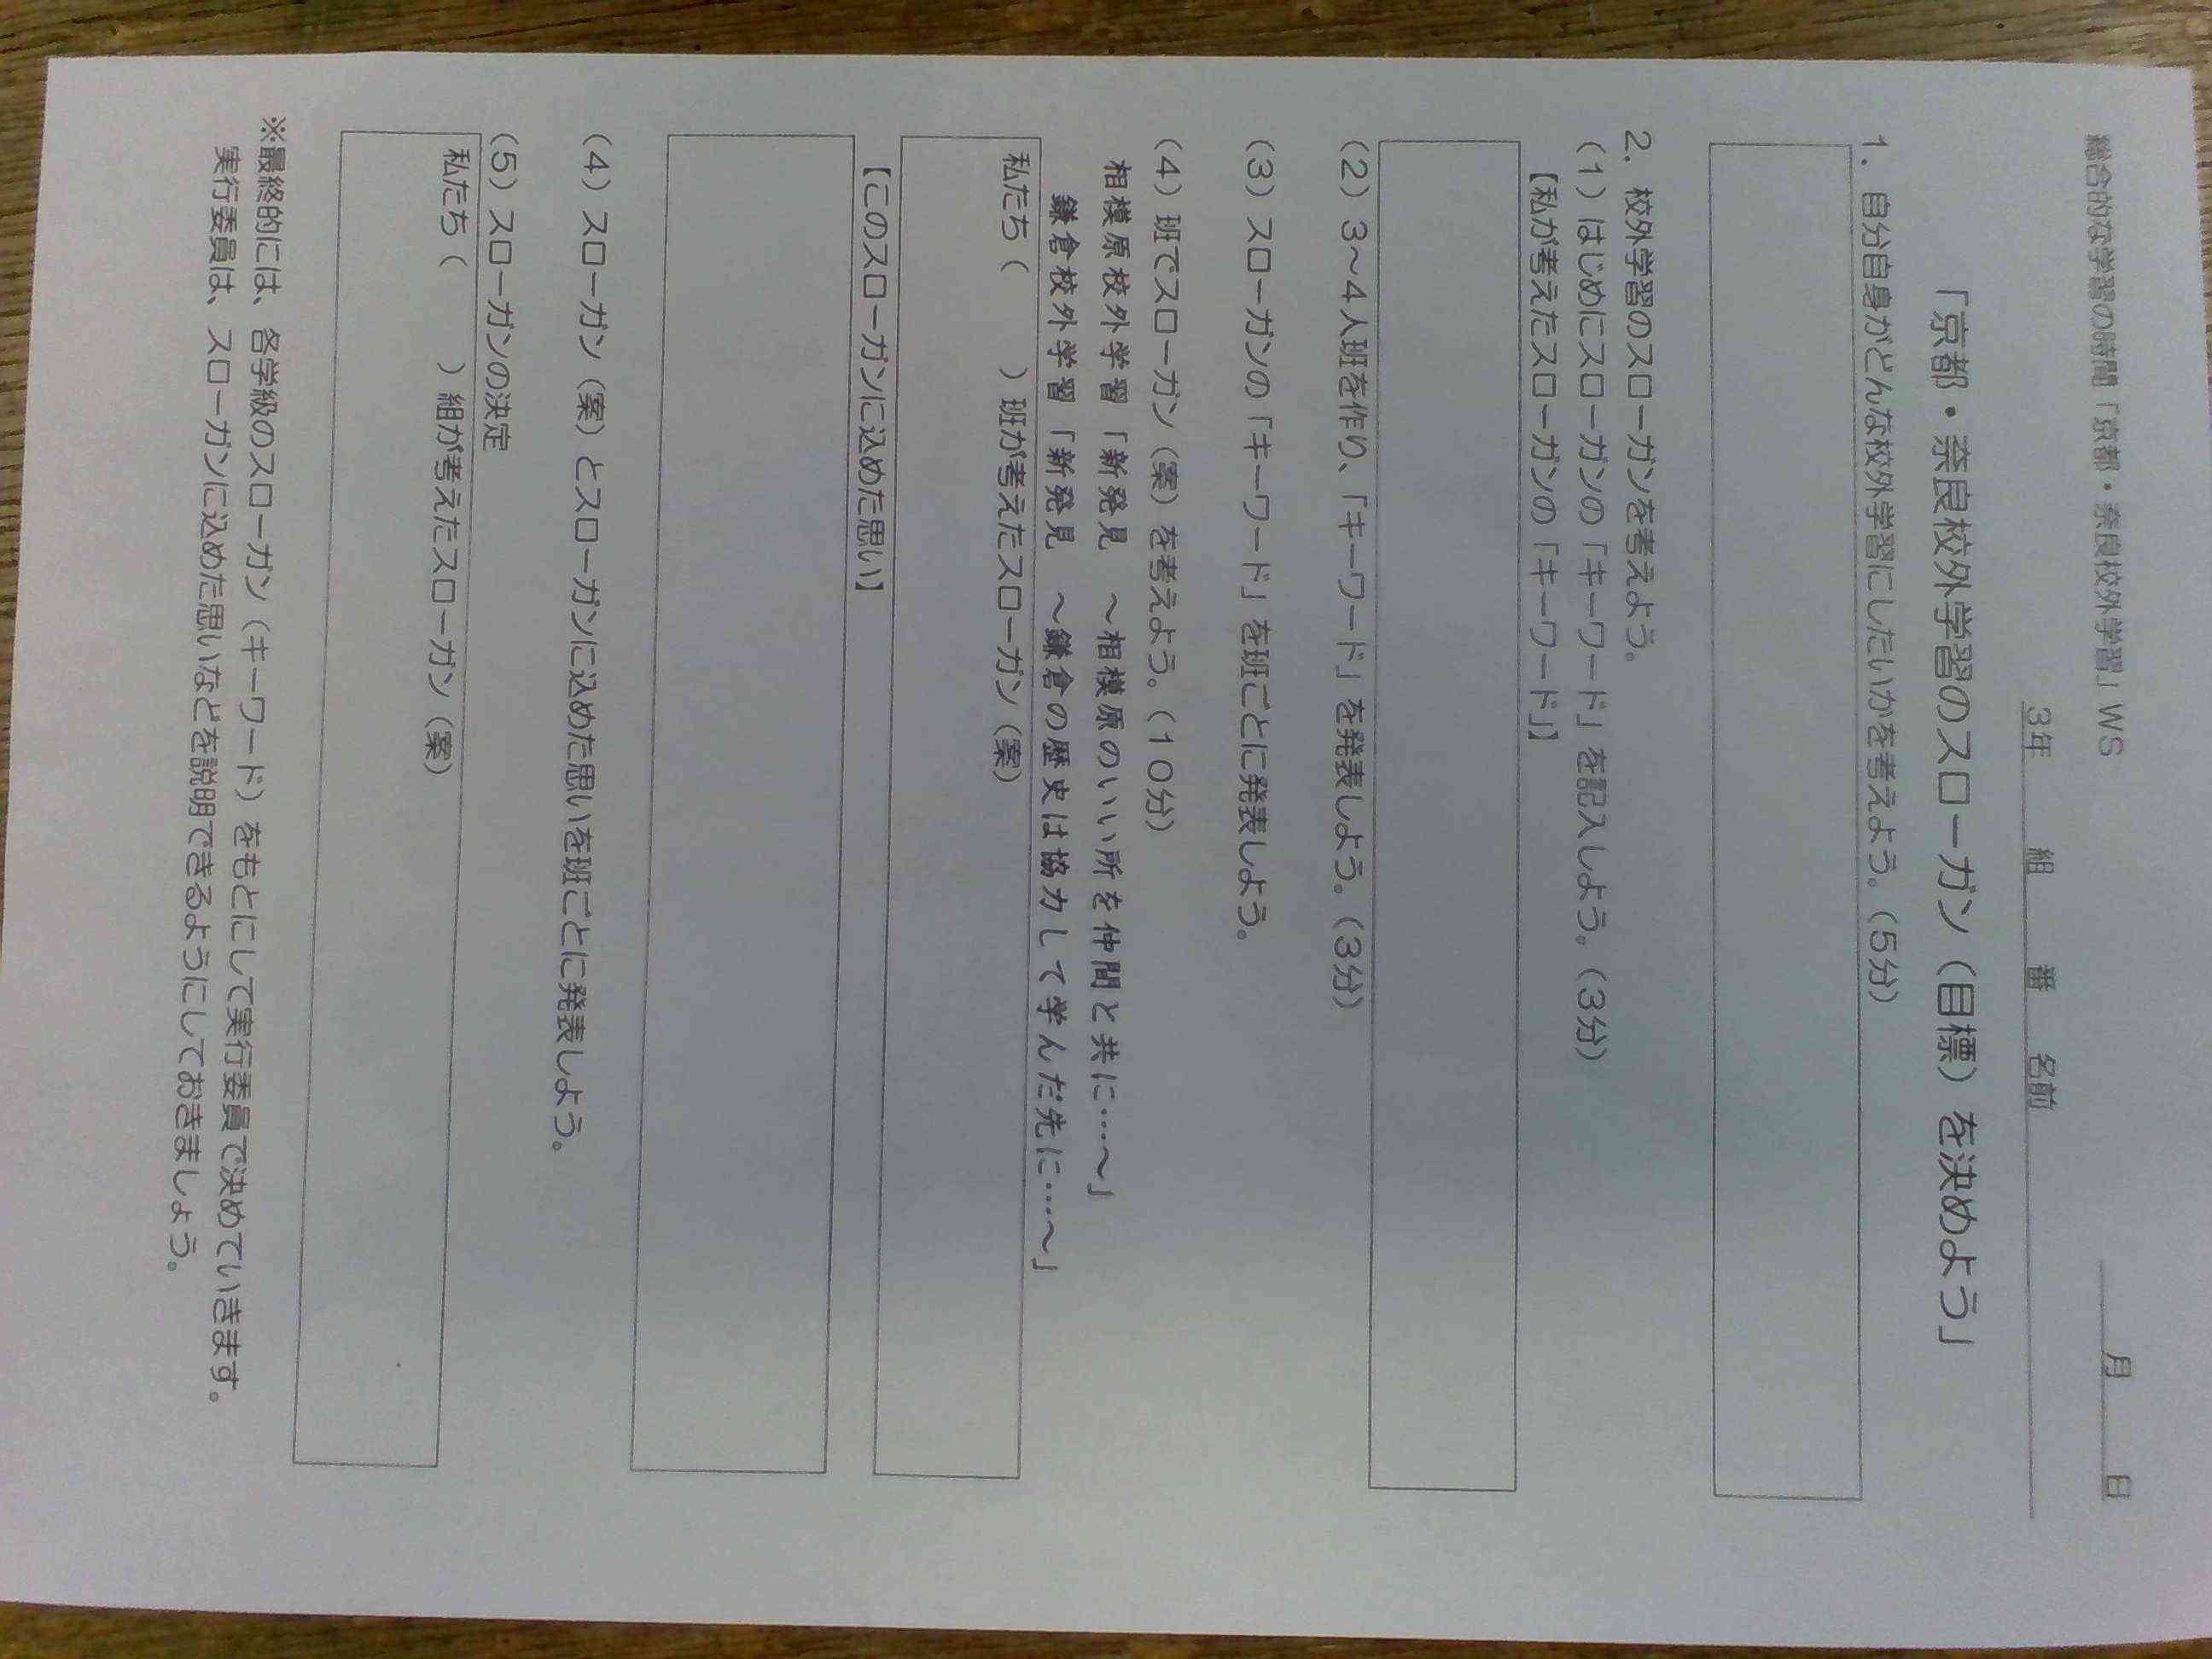 総合的な学習の時間「京都・奈良校外学習」WS
月 日
3年 組 番 名前
「京都・奈良校外学習のスローガン（目標）を決めよう」
1．自分自身がどんな校外学習にしたいかを考えよう。（5分）
2．校外学習のスローガンを考えよう。
（1）はじめにスローガンの「キーワード」を記入しよう。（3分）
【私が考えたスローガンの「キーワード」】
（2）3～4人班を作り、「キーワード」を発表しよう。（3分）
（3）スローガンの「キーワード」を班ごとに発表しよう。
（4）班でスローガン（案）を考えよう。（10分）
相模原校外学習「新発見　～相模原のいい所を仲間と共に……～」
鎌倉校外学習「新発見　～鎌倉の歴史は協力して学んだ先に……～」
私たち（　　　）班が考えたスローガン（案）
【このスローガンに込めた思い】
（4）スローガン（案）とスローガンに込めた思いを班ごとに発表しよう。
（5）スローガンの決定
私たち（　　　）組が考えたスローガン（案）
※最終的には、各学級のスローガン（キーワード）をもとにして実行委員で決めていきます。
実行委員は、スローガンに込めた思いなどを説明できるようにしておきましょう。